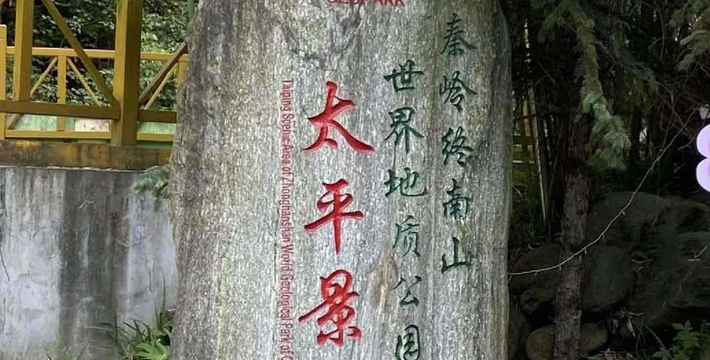 GEOPARK
秦岭终南山
世界地质公园
太平景
Taiping Scenic Area of Zhongnanshan World Geological Park of
8